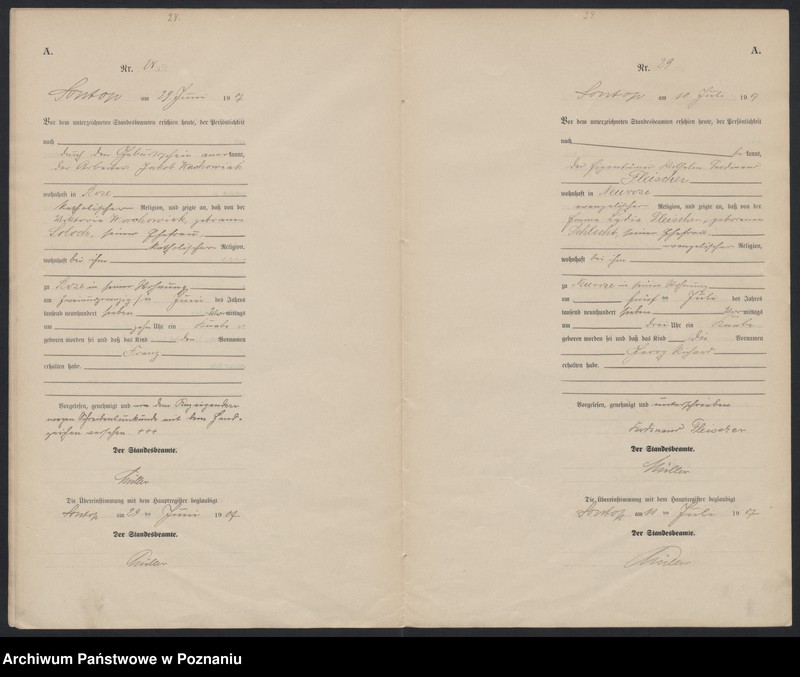 28.
A.
Nr. 28
Sontop am 29 Juni 1907
Vor dem unterzeichneten Standesbeamten erschien heute, der Persönlichkeit
nach
durch den Geburtsschein anerkannt,
der Arbeiter Jakob Wachowiak
wohnhaft in Roze
katholischer Religion, und zeigte an, daß von der
Viktoria Wachowiak, geborenen
seiner Ehefrau
katholischer Religion,
wohnhaft bei ihm
zu Roze in seiner Wohnung
am Juni des Jahres
tausend neunhundert sieben mittags
um zehn Uhr ein Knabe
geboren worden sei und daß das Kind den Vornamen
Franz
erhalten habe.
Vorgelesen, genehmigt und von dem Anzeigenden
wegen Schreibensunkunde mit dem Hand-
zeichen versehen +++
Der Standesbeamte.
Müller
Die Übereinstimmung mit dem Hauptregister beglaubigt
Sontop am 29 ten Juni 1907
Der Standesbeamte.
Müller
29
A.
Nr. 29
Sontop am 10 Juli 1907
Vor dem unterzeichneten Standesbeamten erschien heute, der Persönlichkeit
nach
kannt,
der Eigentümer Wilhelm Ferdinand
Fleischer
wohnhaft in Neuroze
evangelischer Religion, und zeigte an, daß von der
Emma Lydia Fleischer, geborenen
Schlecht, seiner Ehefrau
evangelischer Religion,
wohnhaft bei ihm
zu Neuroze in seiner Wohnung
am fünf ten Juli des Jahres
tausend neunhundert sieben Vormittags
um drei Uhr ein Knabe
geboren worden sei und daß das Kind die Vornamen
Georg Richard
erhalten habe.
Vorgelesen, genehmigt und unterschrieben
Ferdinand Fleischer
Der Standesbeamte.
Müller
Die Übereinstimmung mit dem Hauptregister beglaubigt
Sontop am 10 ten Juli 1907
Der Standesbeamte.
Müller
Archiwum Państwowe w Poznaniu